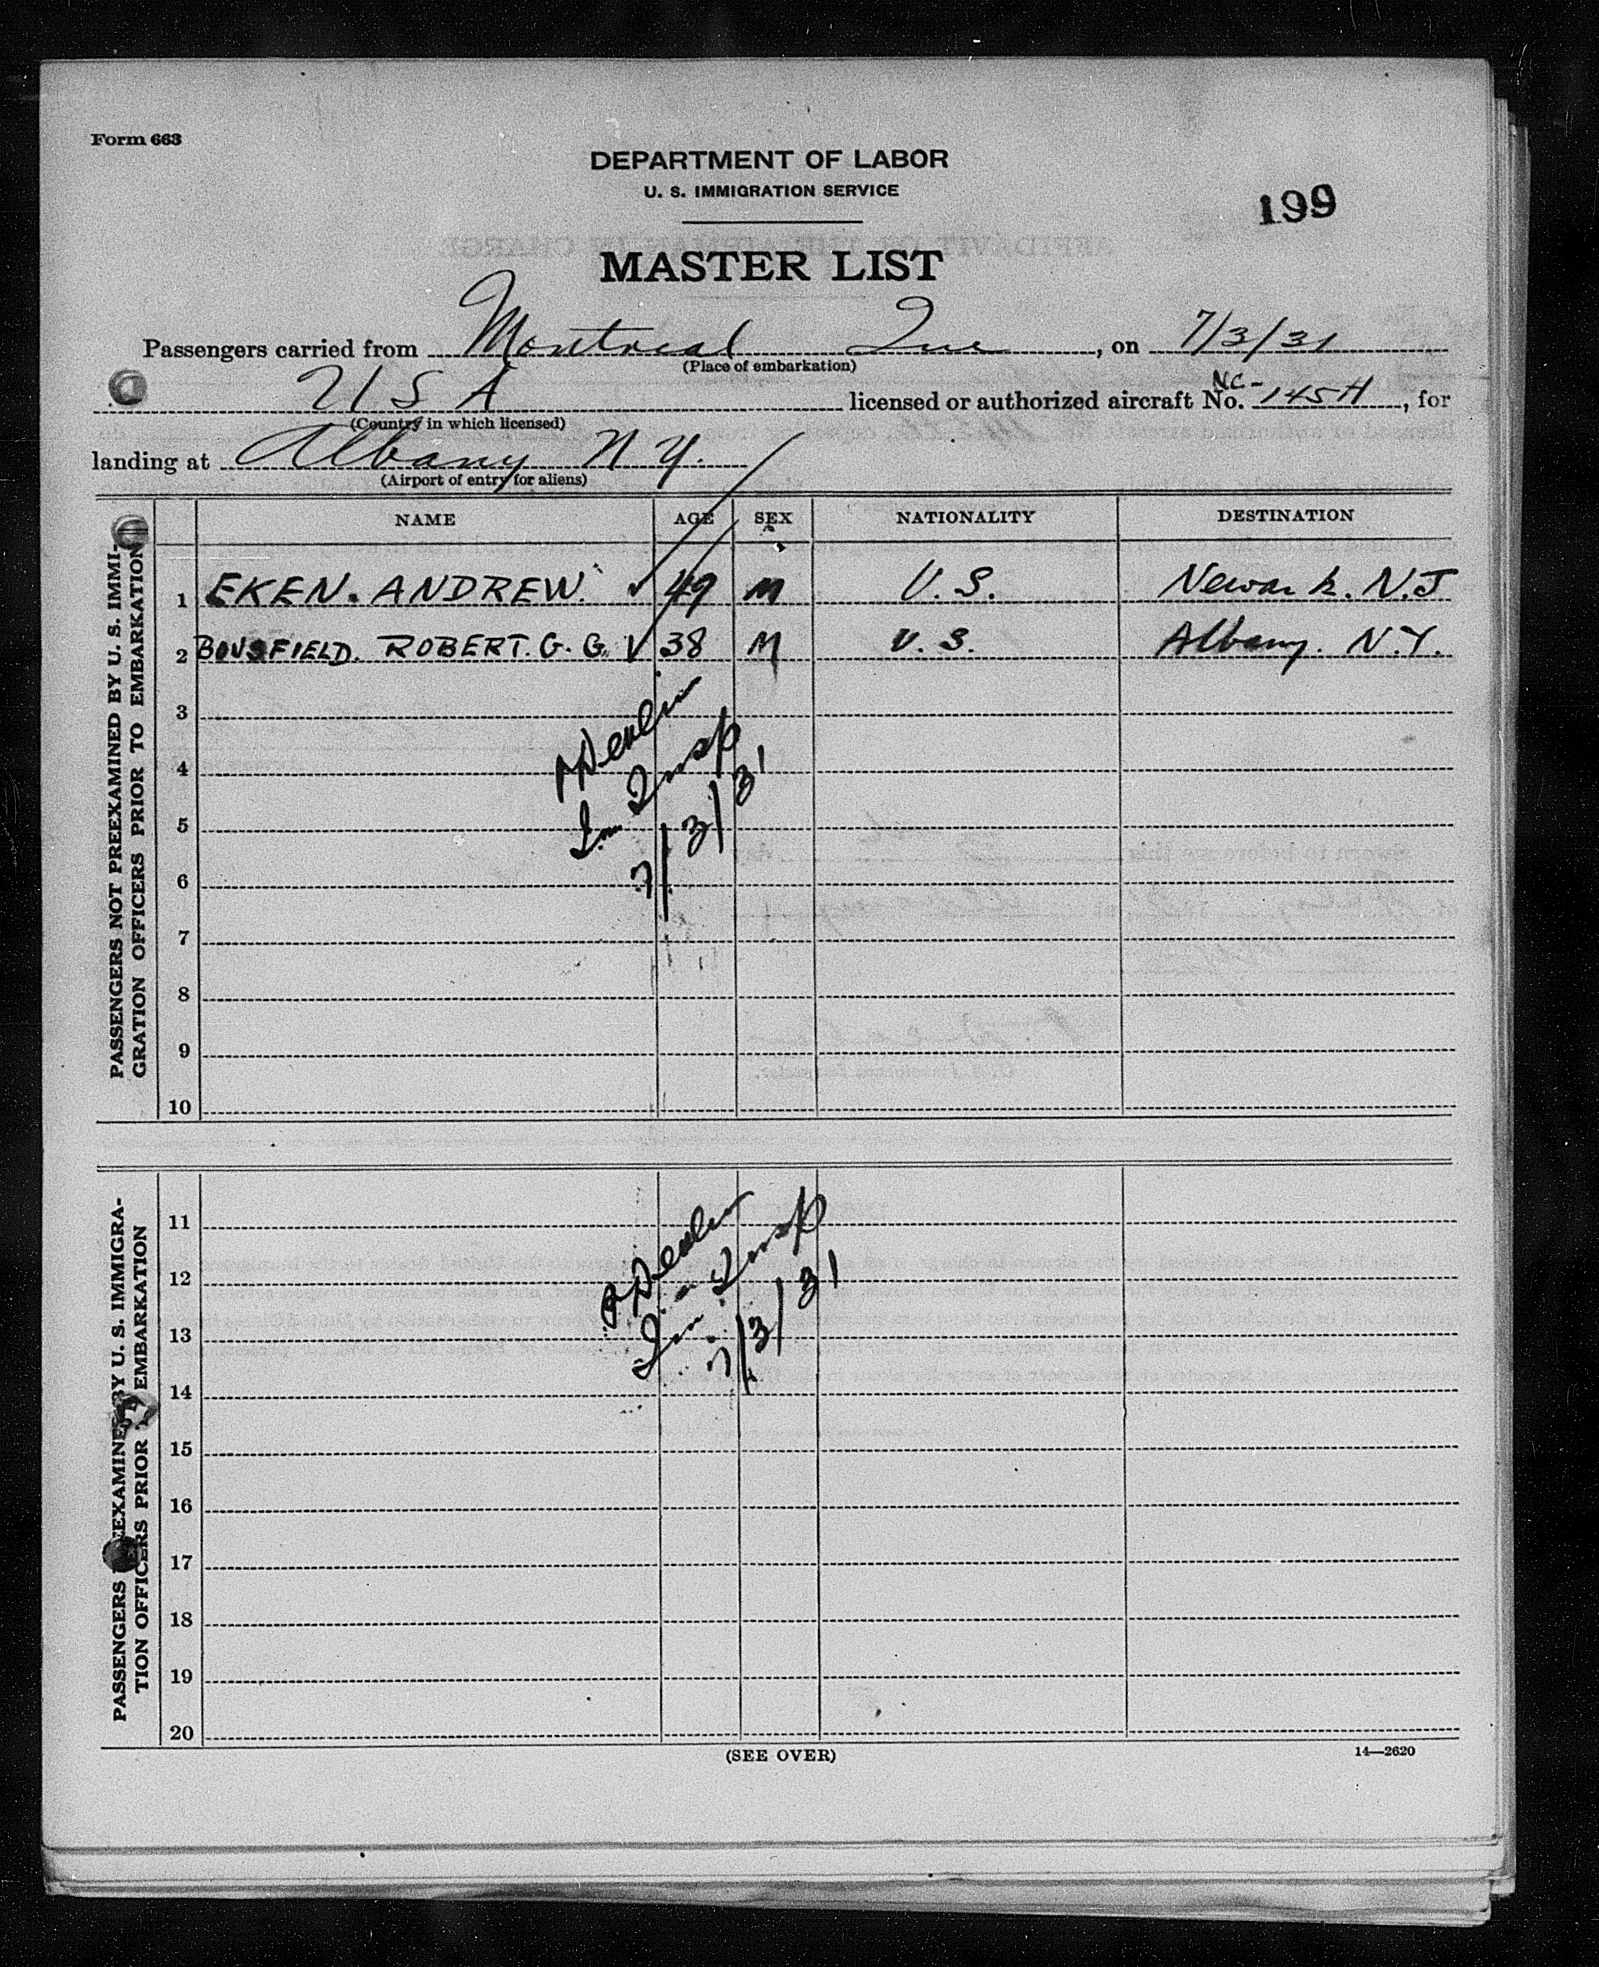 Form 663
DEPARTMENT OF LABOR
U. S. IMMIGRATION SERVICE
199
MASTER LIST
Passengers carried from Montreal Que, on 7/3/31
(Place of embarkation)
USA licensed or authorized aircraft No. NC-145H, for
(Country in which licensed)
landing at Albany N Y.
(Airport of entry for aliens)
NAME AGE SEX NATIONALITY DESTINATION
PASSENGERS NOT PREEXAMINED BY U. S. IMMI-
GRATION OFFICERS PRIOR TO EMBARKATION
1 EKEN. ANDREW. ✓ 49 M U.S. Newark. N.J
2 BOUSFIELD. ROBERT. G. G. ✓ 38 M U.S. Albany. N.Y.
3
4
5
6
7
8
9
10
Devlin
Im Insp
7/3/31
PASSENGERS PREEXAMINED BY U. S. IMMIGRA-
TION OFFICERS PRIOR TO EMBARKATION
11
12
13
14
15
16
17
18
19
20
Devlin
Im Insp
7/3/31
(SEE OVER)
14—2620